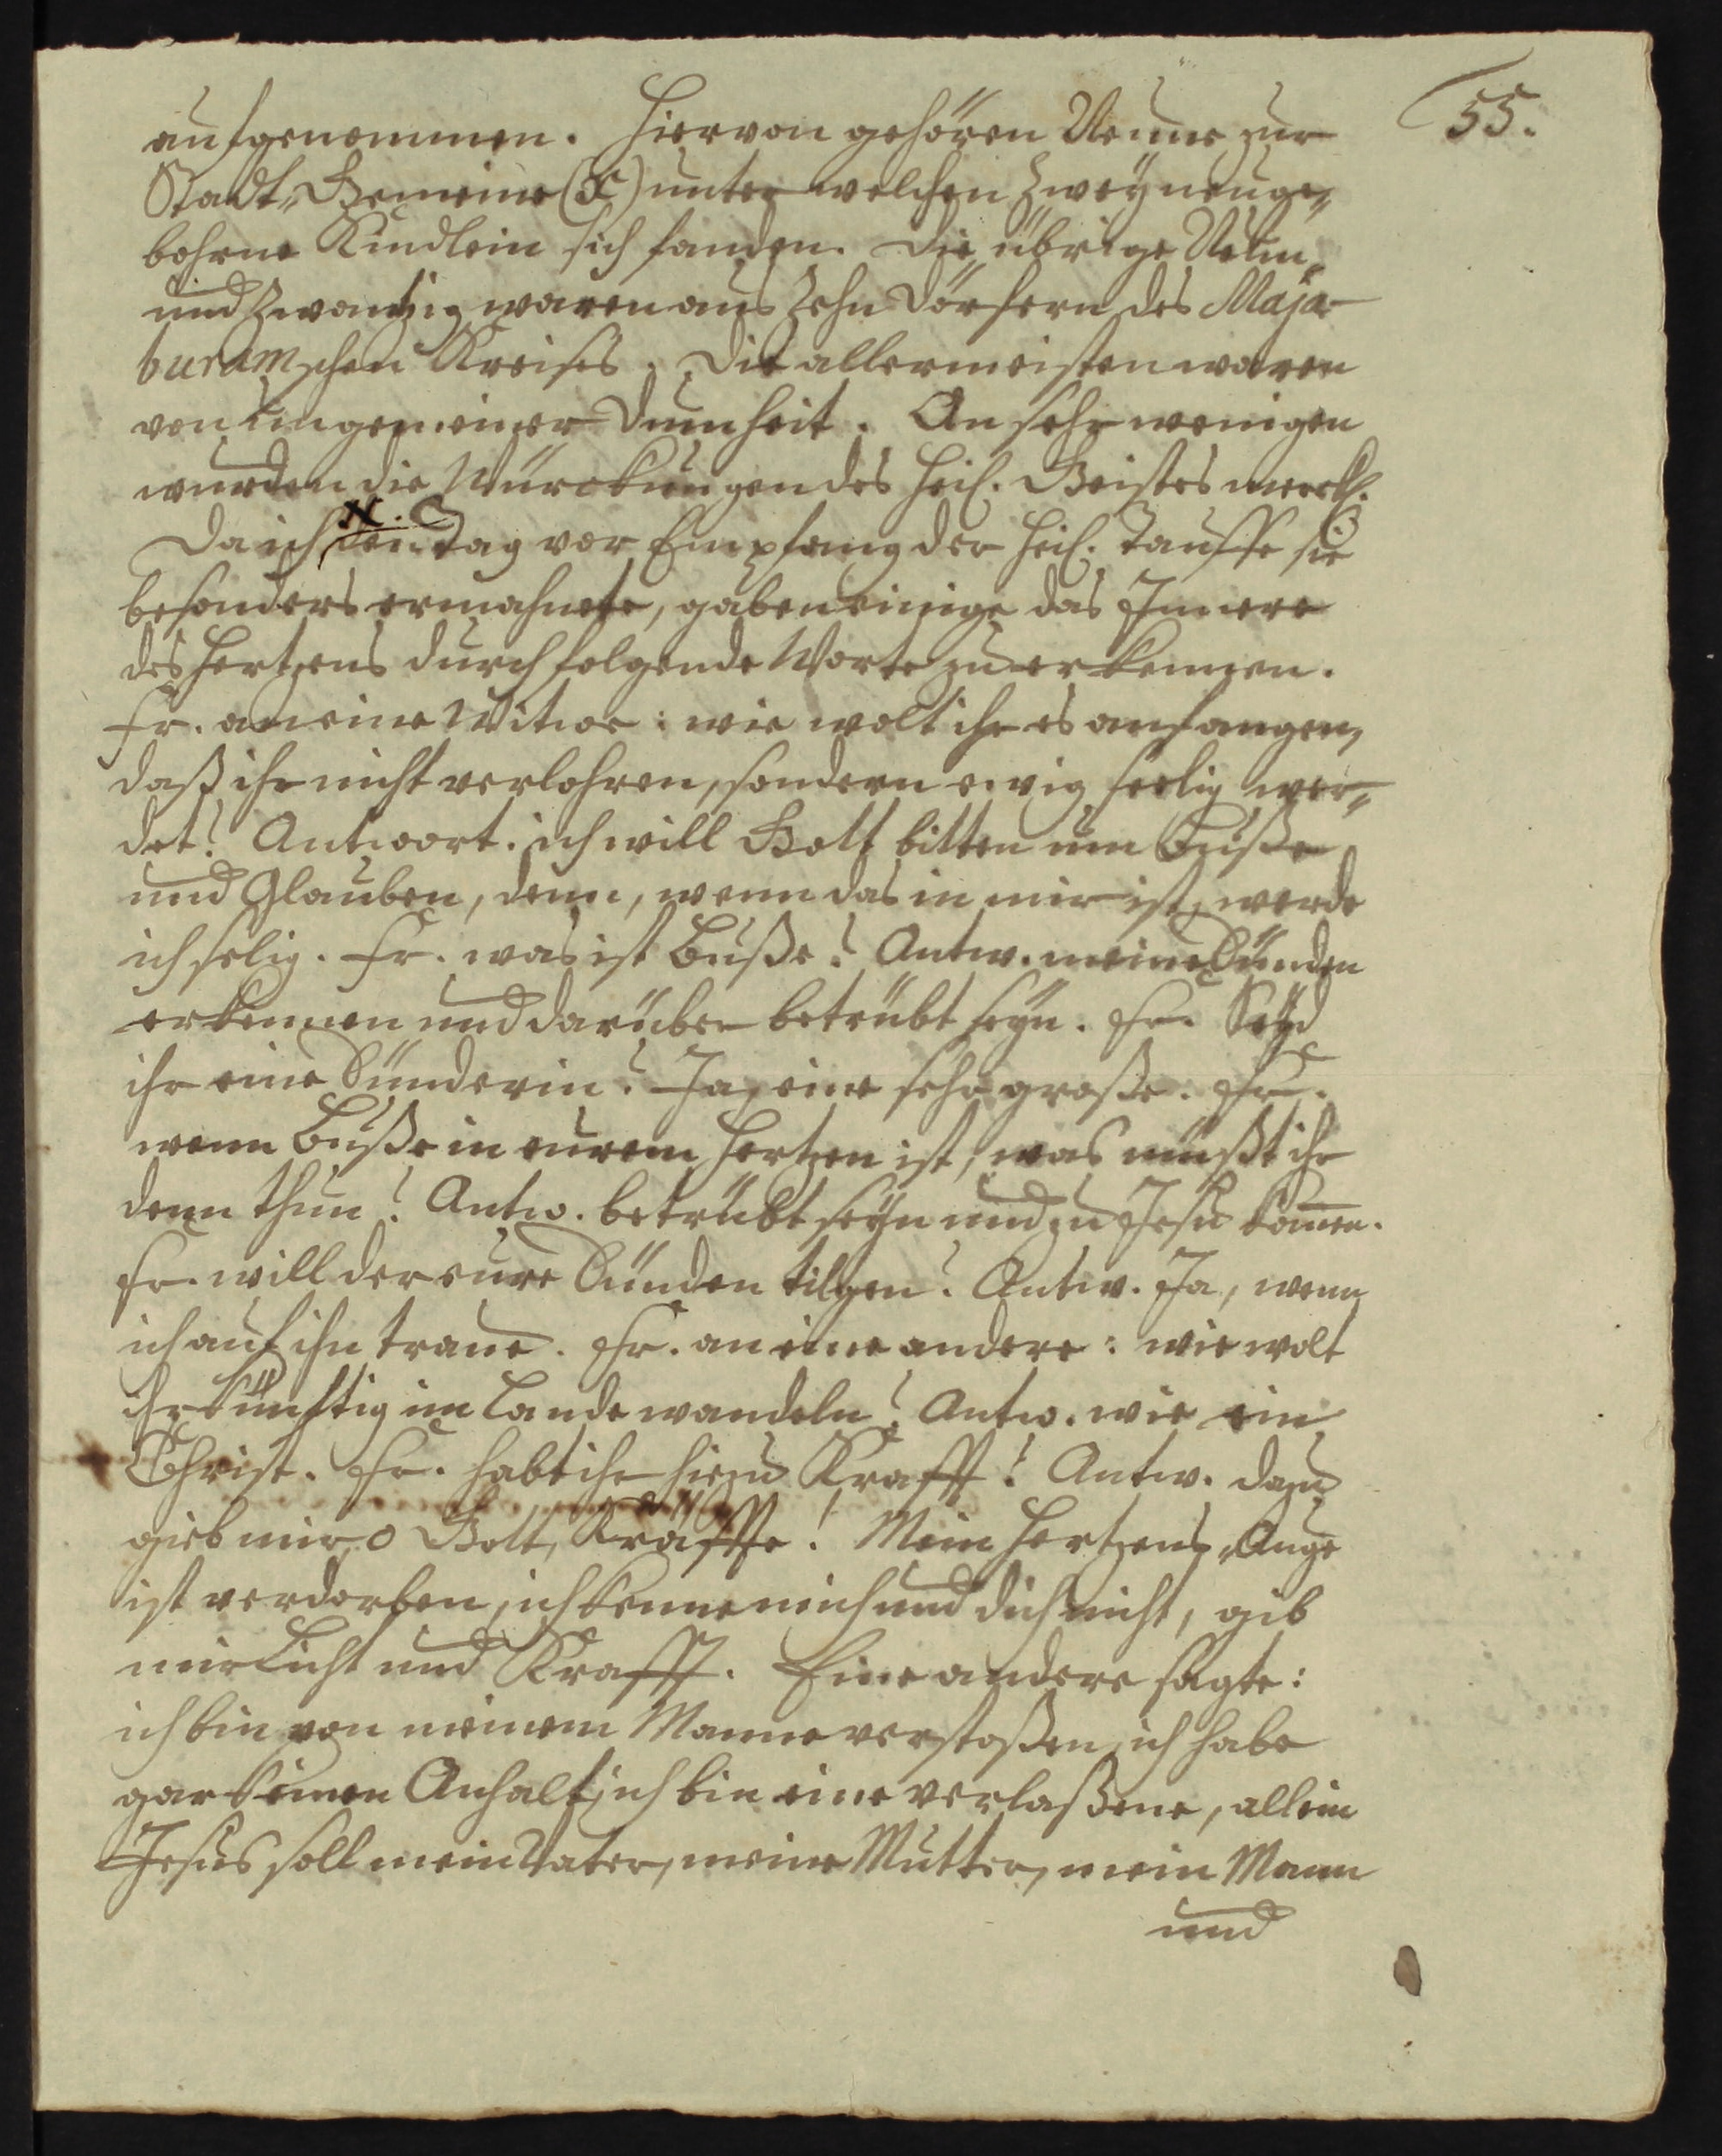 55.
aufgenommen. Hiervon gehören Neune zur
Stadt-Gemeine (x) unter welchen zwey neuge-
bohrne Kindlein sich fanden. Die übrige Neun
und zwantzig waren aus zehn Dörfern des Maja-
buramschen Kreises. Die allermeisten waren
von ungemeiner Dumheit. An sehr wenigen
wurden die Würckungen des Heil. Geistes merckl.
Da ich den Tag vor Empfang der Heil. Tauffe sie
besonders ermahnete, gaben einige das Innere
des Hertzens durch folgende Worte zu erkennen.
Fr. an eine Witwe: wie wolt ihr es anfangen,
daß ihr nicht verlohren, sondern ewig seelig wer-
det? Antwort. ich will Gott bitten um Buße
und Glauben, denn, wenn das in mir ist, werde
ich selig. Fr. was ist Buße? Antw. meine Sünden
erkennen und darüber betrübt seyn. Fr. Seyd
ihr eine Sünderin? Ja, eine sehr große. Fr.
wenn Buße in eurem Hertzen ist, was müßt ihr
denn thun? Antw. betrübt seyn und zu Jesu kom̄en.
Fr. will der eure Sünden tilgen? Antw. Ja, wenn
ich auf ihn traue. Fr. an eine andere: wie wolt
ihr künftig im Lande wandeln? Antw. wie ein
Christ. Fr. habt ihr hiezu Krafft? Antw. dazu
gieb mir, o Gott, Kräffte! Mein Hertzens-Auge
ist verdorben, ich kenne mich und dich nicht, gib
mir Licht und Krafft. Eine andere sagte:
ich bin von meinem Manne verstoßen, ich habe
gar keinen Anhalt, ich bin eine verlaßene, allein
Jesus soll mein Vater, meine Mutter, mein Mann
und